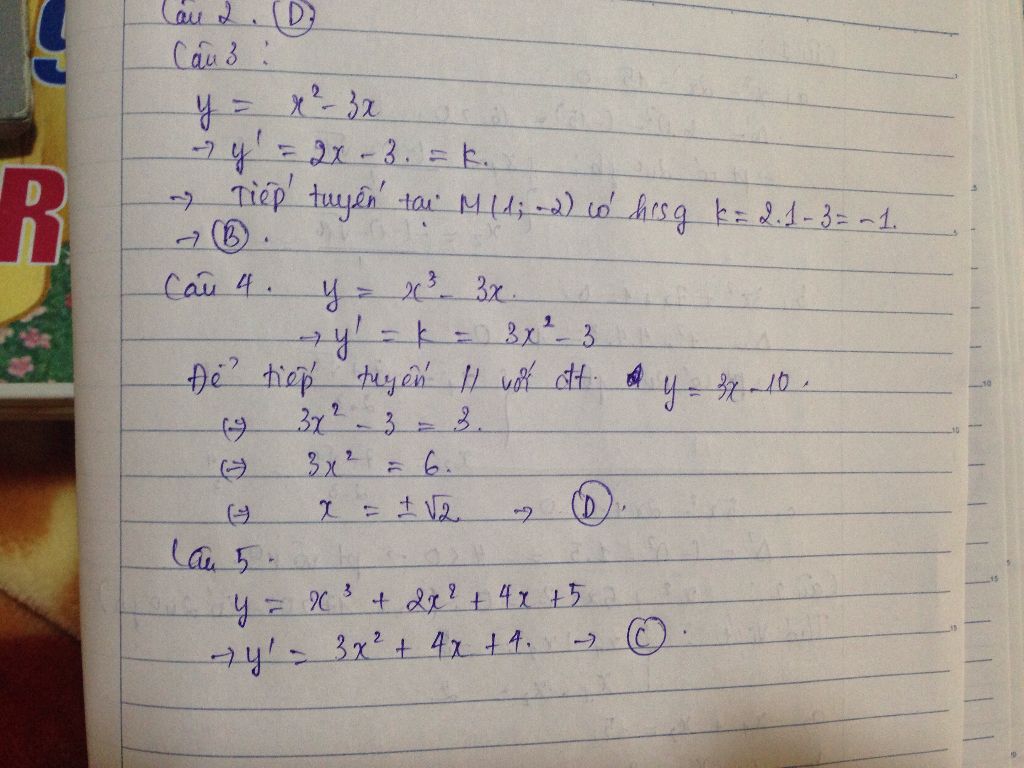 Câu 2. D.
Câu 3:
y = x² - 3x
→ y' = 2x - 3. = k.
→ Tiếp tuyến tại M(1; -2) có hsg k = 2.1 - 3 = -1.
→ B.
Câu 4. y = x³ - 3x.
→ y' = k = 3x² - 3
Để tiếp tuyến // với đt. y = 3x - 10.
(=) 3x² - 3 = 3.
(=) 3x² = 6.
(=) x = ±√2 → D.
Câu 5.
y = x³ + 2x² + 4x + 5
→ y' = 3x² + 4x + 4. → C.
R